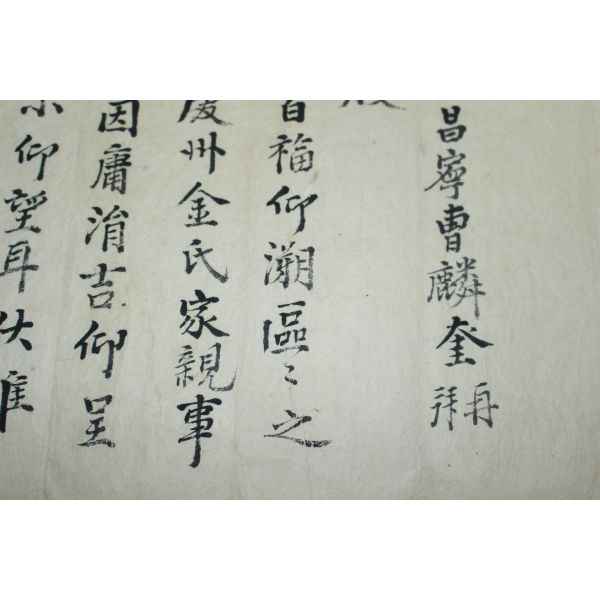 昌寧曺麟奎再拜
百福仰溯區〻之
慶州金氏家親事
因庸涓吉仰呈
仰望耳伏惟